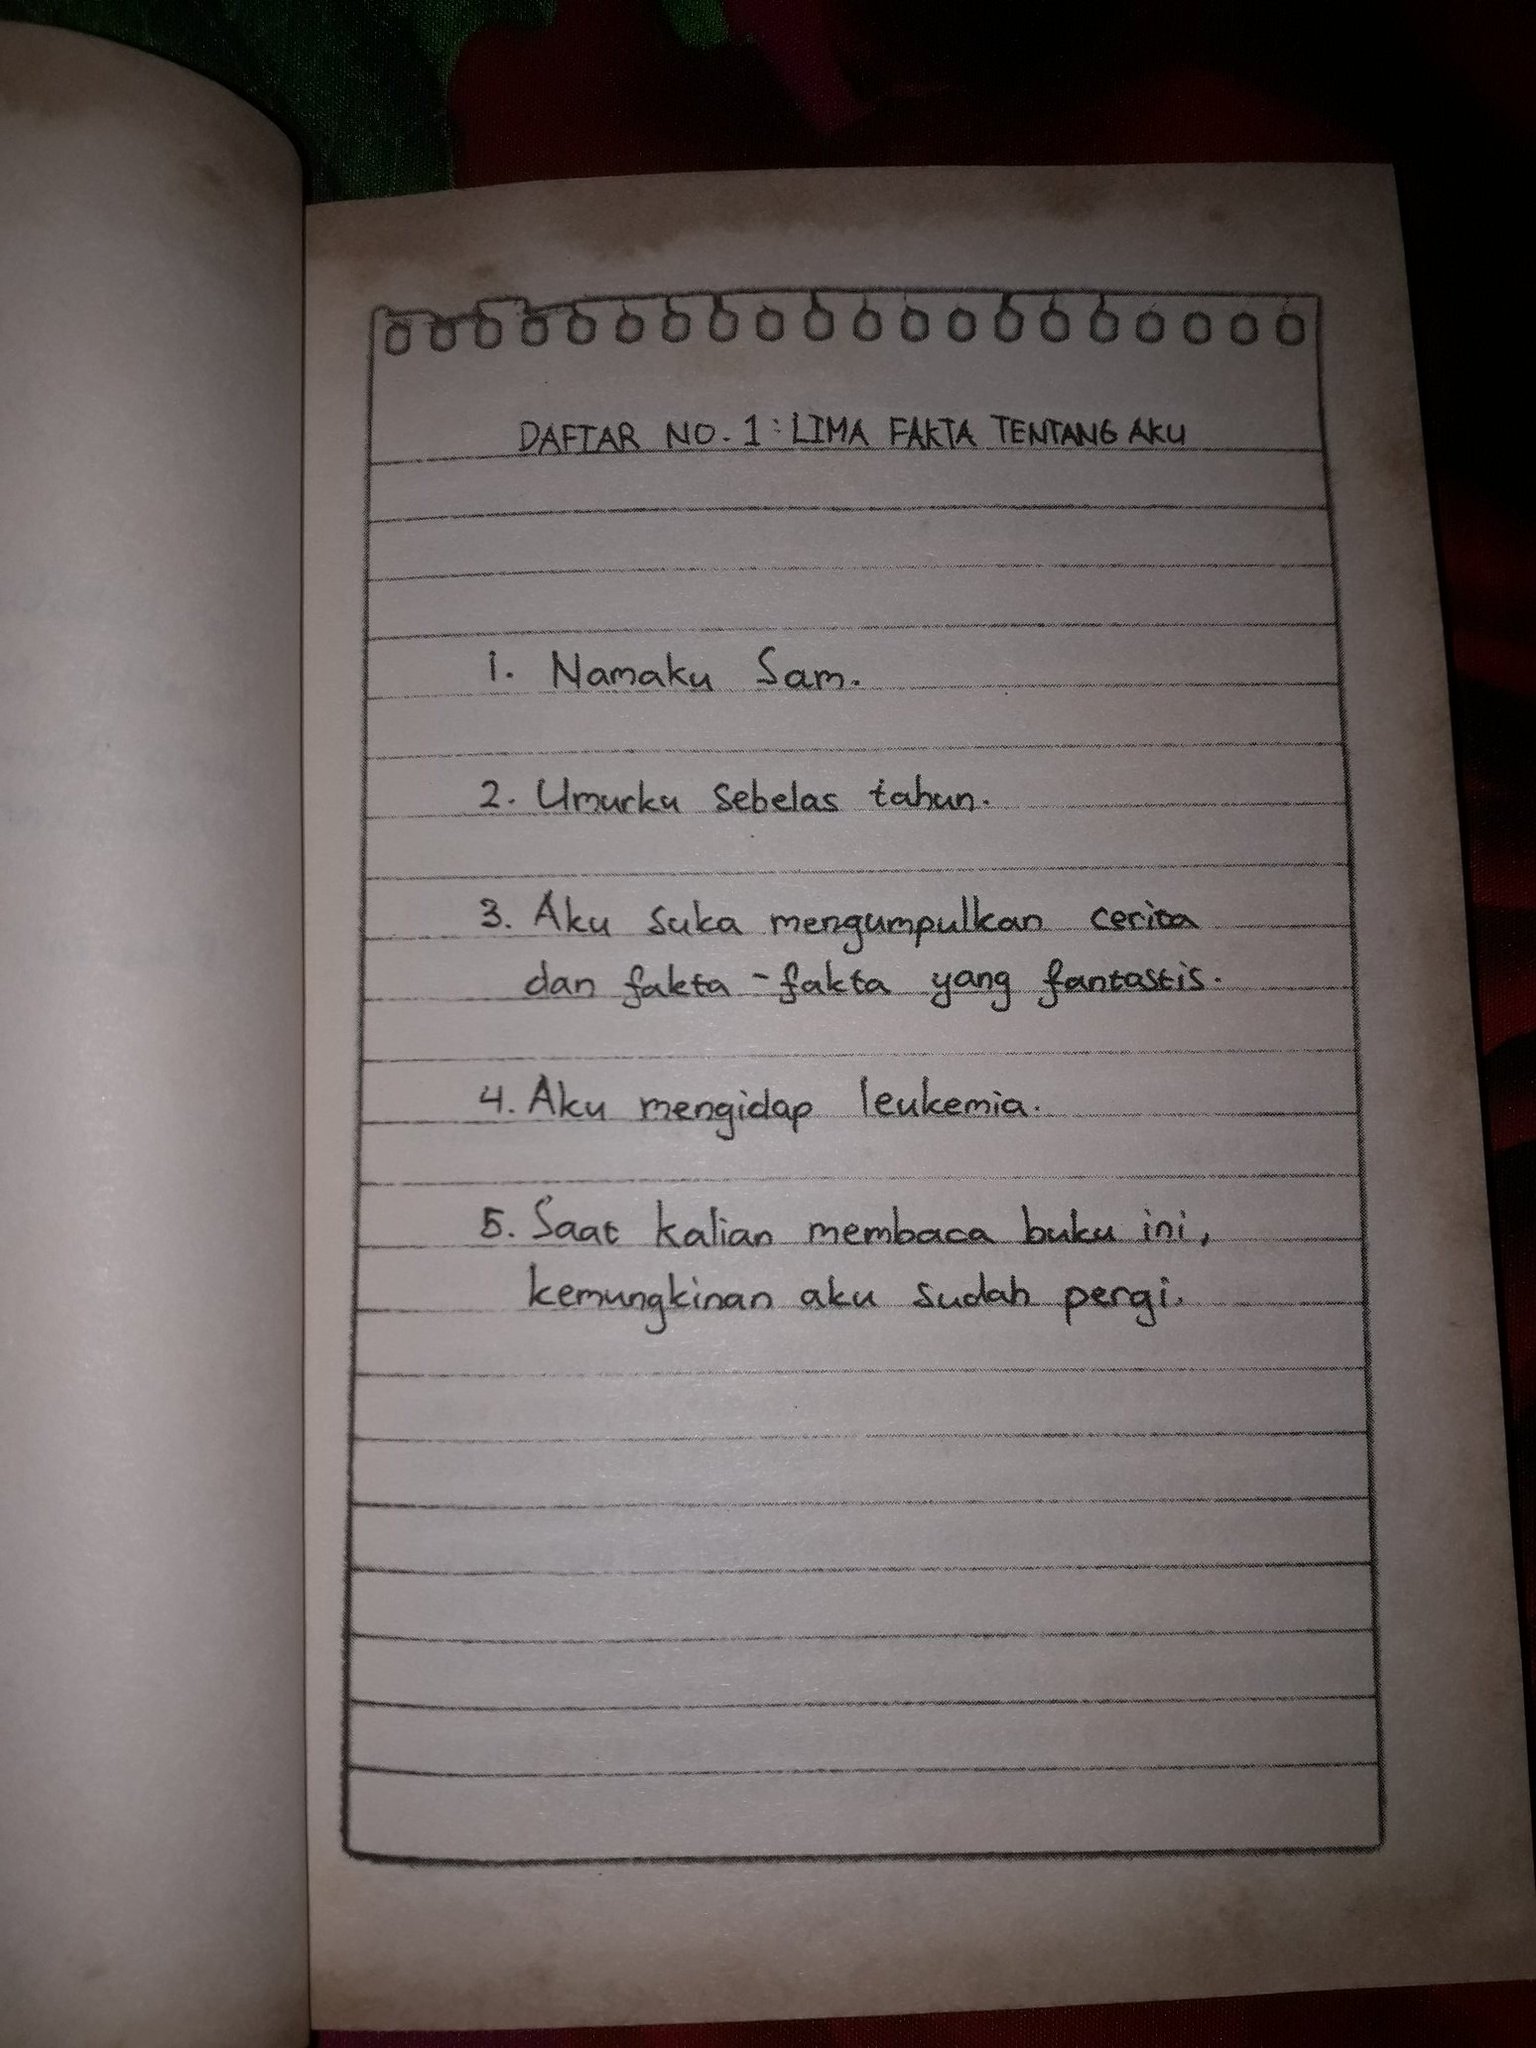 DAFTAR NO. 1 : LIMA FAKTA TENTANG AKU
1. Namaku Sam.
2. Umurku sebelas tahun.
3. Aku suka mengumpulkan cerita
dan fakta-fakta yang fantastis.
4. Aku mengidap leukemia.
5. Saat kalian membaca buku ini,
kemungkinan aku sudah pergi.